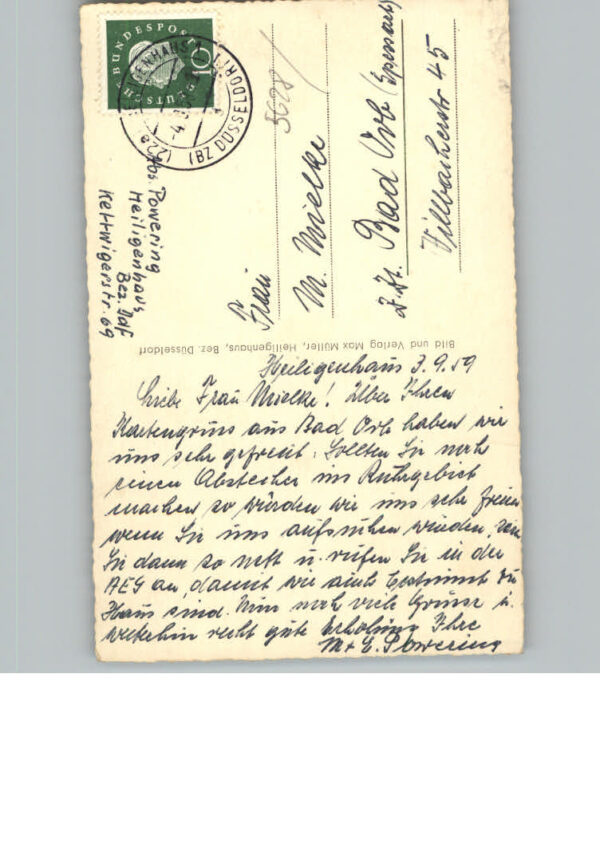 DEUTSCHE
BUNDESPOST
10
(22a) HEILIGENHAUS
(BZ DÜSSELDORF)
5628/
Abs. Powering
Heiligenhaus,
Bez. Ddf
Kettwigerstr. 69
Frau
M. Mielke
z. Zt. Bad Orb (Spessart)
Villbacherstr 45
Bild und Verlag Max Müller, Heiligenhaus, Bez. Düsseldorf
Heiligenhaus 3.9.59
Liebe Frau Mielke! Über Ihren
Kartengruss aus Bad Orb haben wir
uns sehr gefreut. Sollten Sie noch
einen Abstecher ins Ruhrgebiet
machen so würden wir uns sehr freuen
wenn Sie uns aufsuchen würden,
Sie dann so nett u. rufen Sie in der
AEG an, damit wir auch bestimmt zu
Haus sind. Nun noch viele Grüsse u.
weiterhin recht gute Erholung Ihre
M. + E. Powering